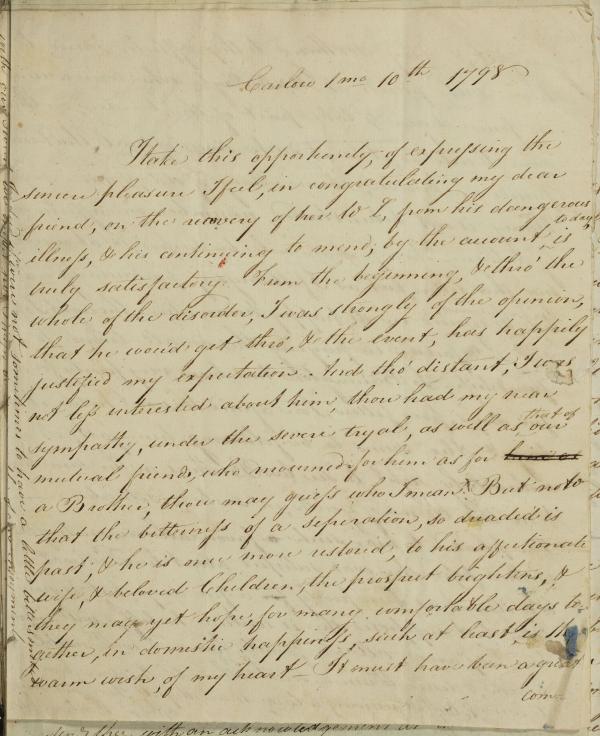 Carlow 1 mo 10th 1798
I take this opportunity, of expressing the
sincere pleasure I feel, in congratulating my dear
friend, on the recovery of her W L, from his dangerous
illness, & his continuing to mend, by the account today is
truly satisfactory. From the beginning, & thro' the
whole of the disorder, I was strongly of the opinion,
that he would get thro', & the event, has happily
justified my expectation. And tho' distant, I was
not less interested about him, thou had my near
sympathy, under the severe tryal, as well as that of our
mutual friend, who mourned for him as for
a Brother, thou may guess who I mean. But now
that the bitterness of a seperation, so dreaded is
past, & he is once more restored, to his affectionate
wife, & beloved Children, the prospect brightens, &
they may yet hope, for many comfortable days to-
gether, in domestic happiness, such at least is the
warm wish, of my heart - It must have been a great
com-
with an acknowledgement